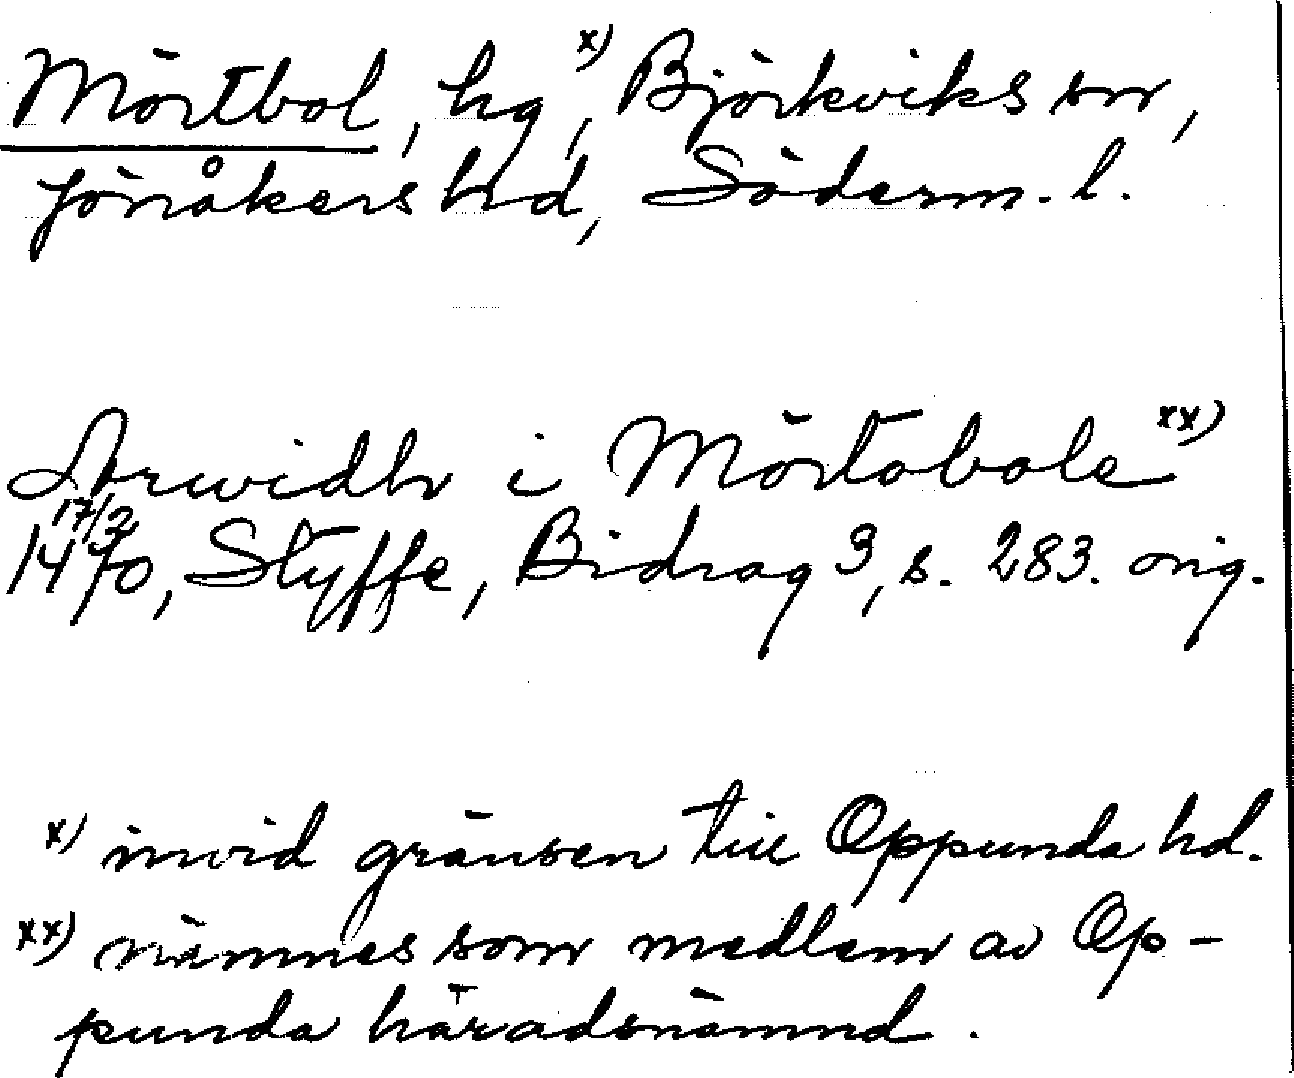 Mörtbol, hg,x) Björkviks sn,
Jönåkers hd, Söderm. l.
Arwidh i Mörtabole xx)
17/2
1470, Styffe, Bidrag 3, s. 283. orig.
x) invid gränsen till Oppunda hd.
xx) nämnes som medlem av Op-
punda häradsnämnd.